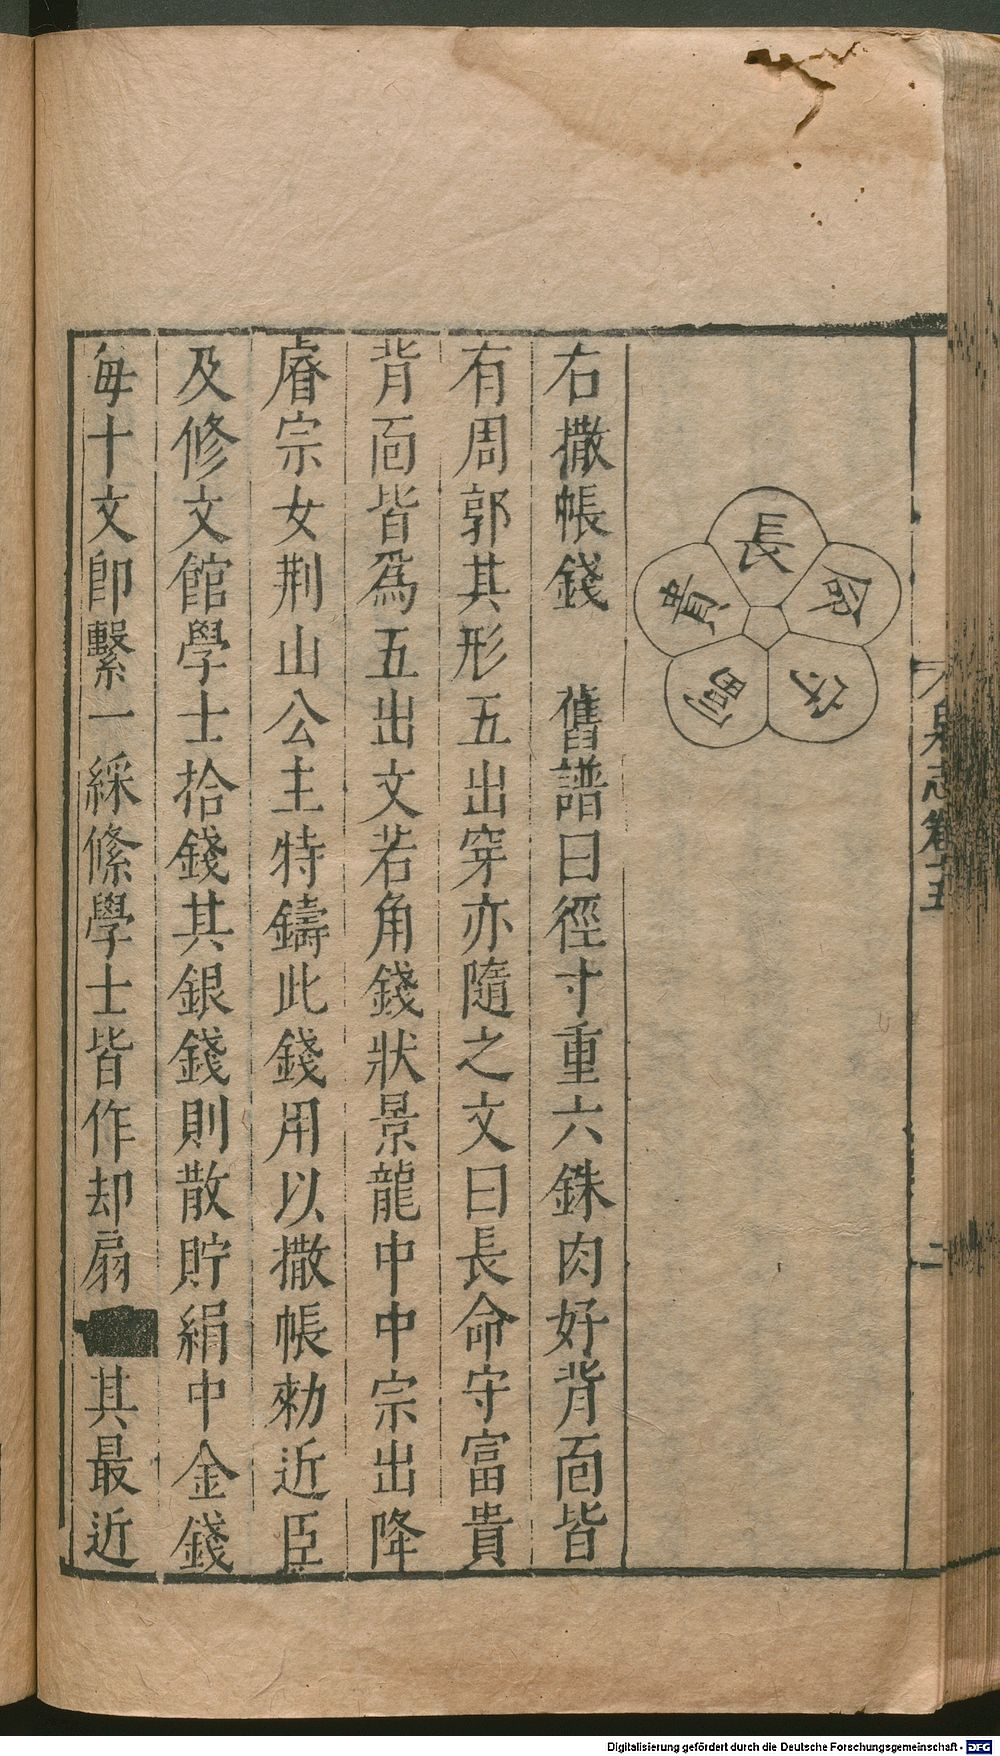 長
命
守
富
貴
右撒帳錢　舊譜曰徑寸重六銖肉好背面皆
有周郭其形五出穿亦隨之文曰長命守富貴
背面皆爲五出文若角錢狀景龍中中宗出降
睿宗女荆山公主特鑄此錢用以撒帳勑近臣
及修文館學士拾錢其銀錢則散貯絹中金錢
每十文即繫一綵絛學士皆作却扇其最近
泉志卷十五
二
Digitalisierung gefördert durch die Deutsche Forschungsgemeinschaft - DFG